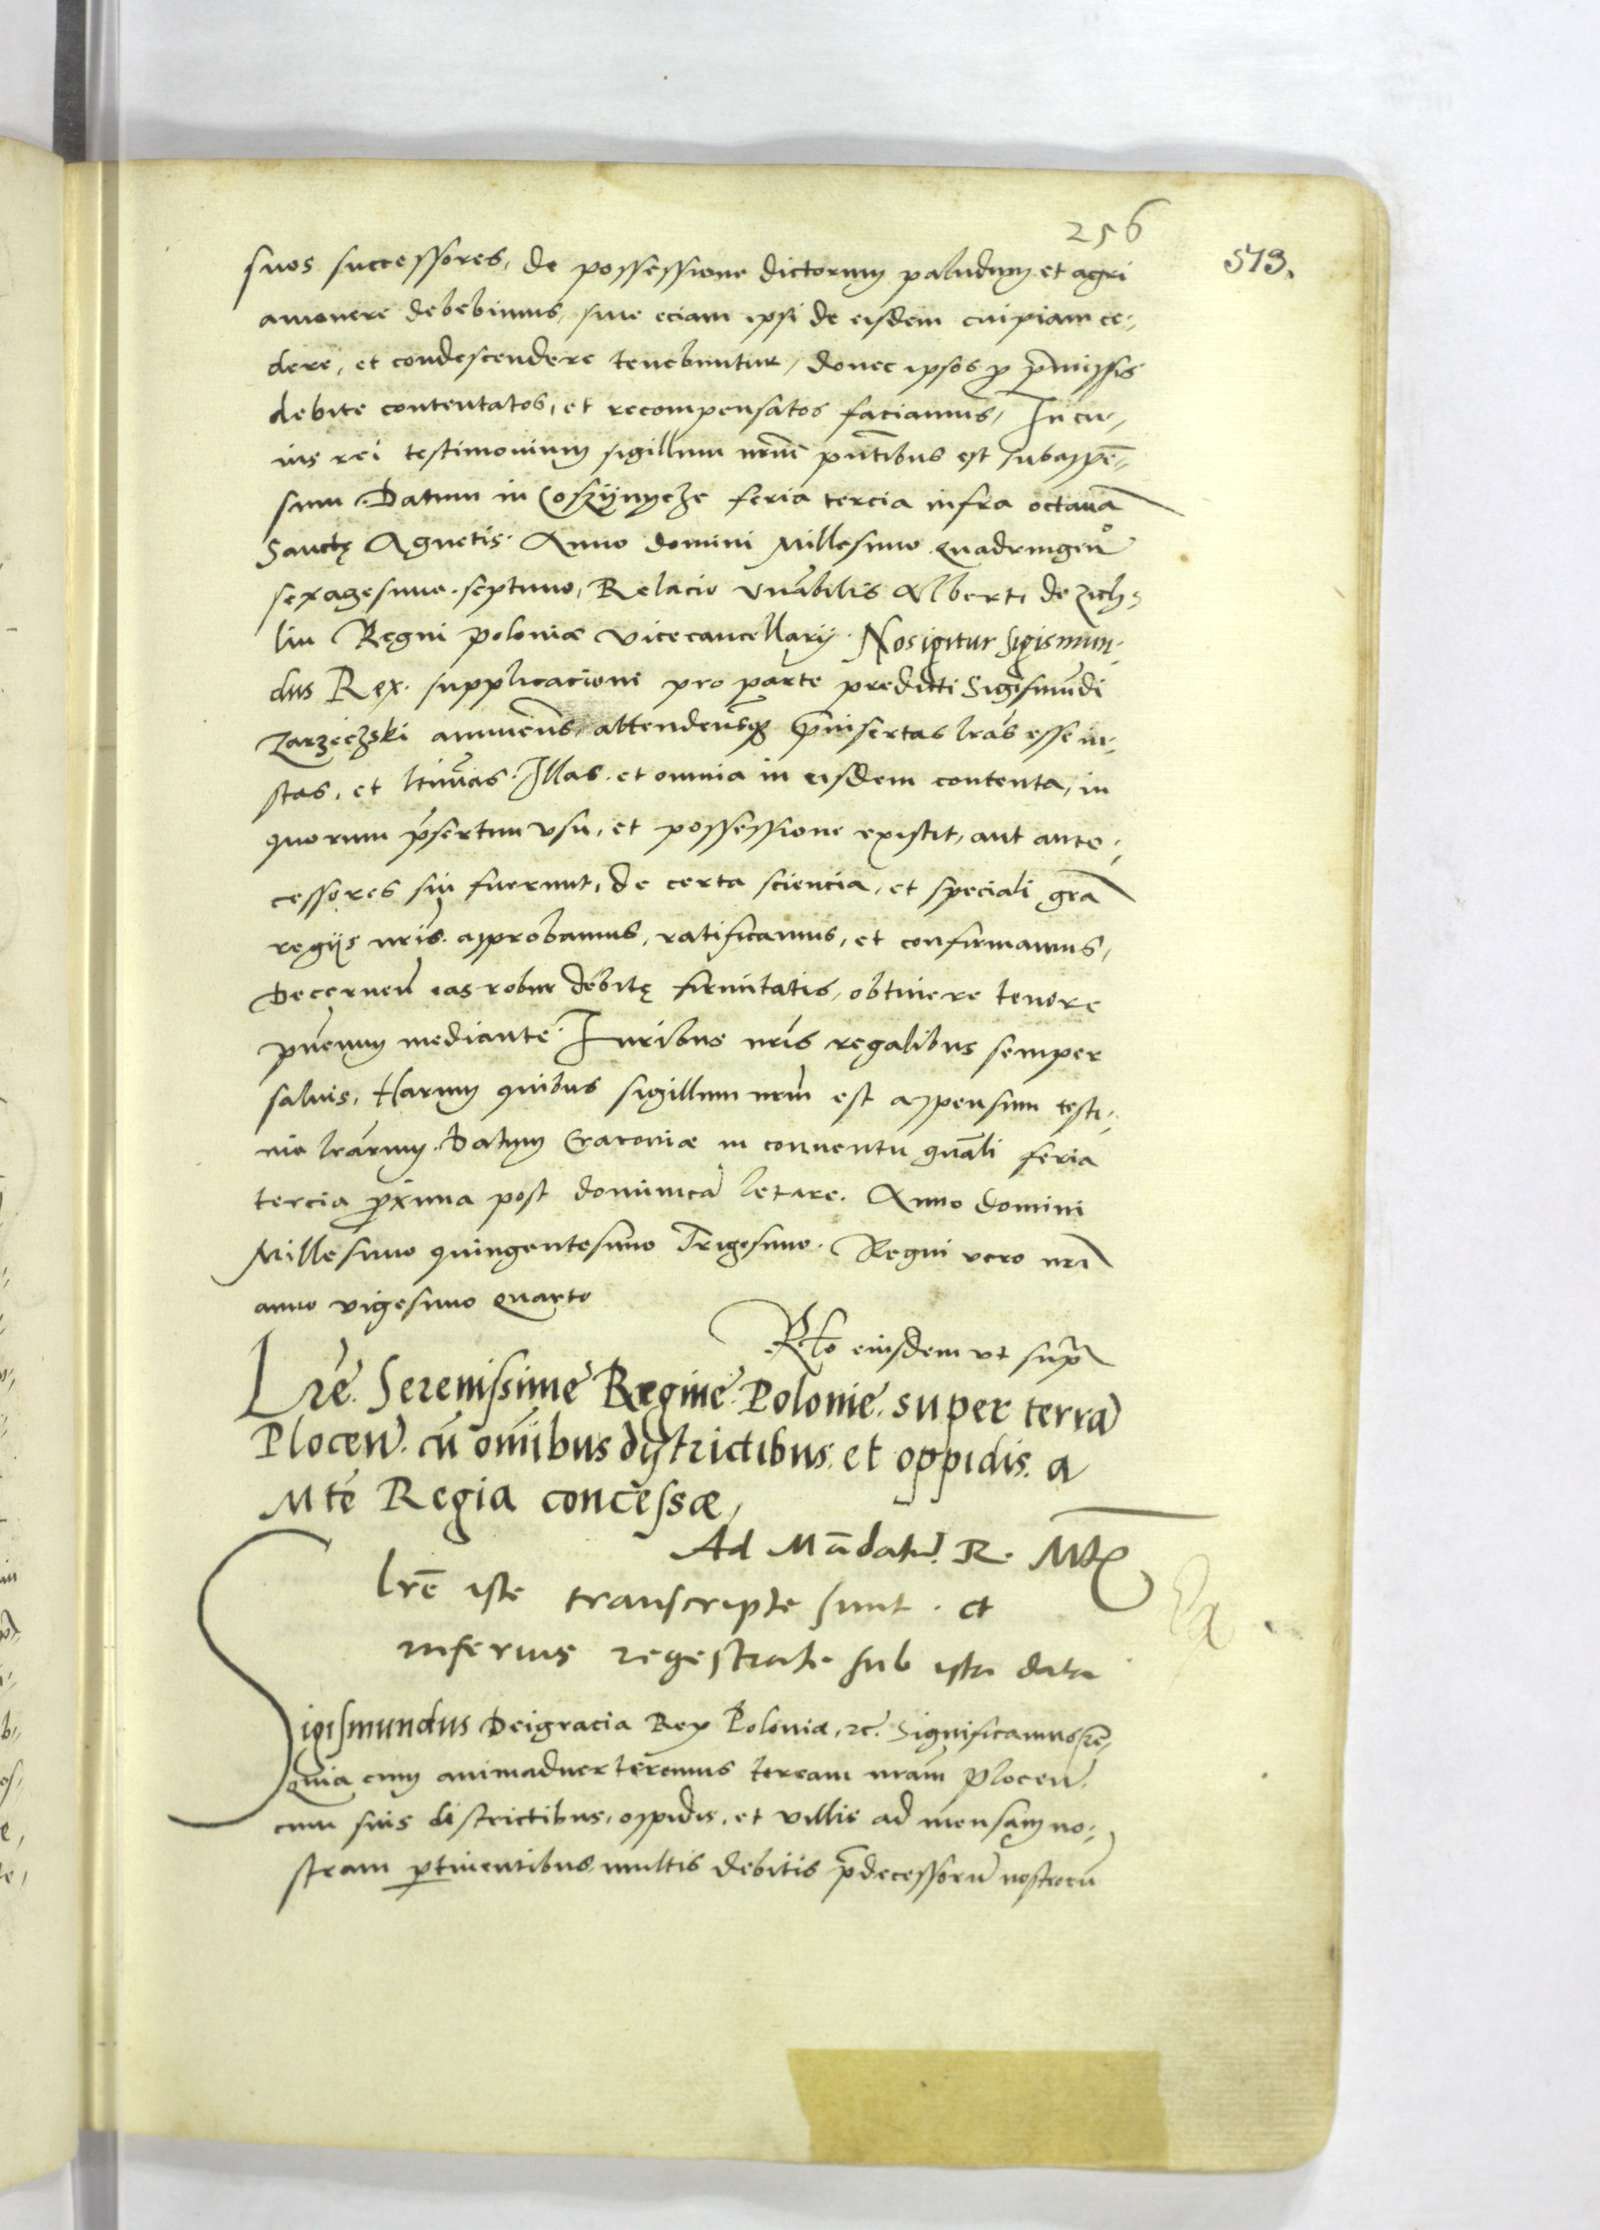 256
513.
suos successores, de possessione dictorum paludum et agri
amovere debebimus, sive eciam ipsi de eisdem cuipiam ce-
dere, et condescendere tenebuntur, donec ipsos p p̄missis
debite contentatos, et recompensatos faciamus, In cu-
ius rei testimonium sigillum nr̄m pn̄tibus est subappē-
sum. Datum in feria tercia infra octauā
Sanctę Agnetis. Anno domini Millesimo quadringenͦ
sexagesimo. septimo, Relacio vn̄abilis Alberti de Zich-
lin Regni poloniæ vicecancellarij. Nos igitur Sigismun-
dus Rex. supplicacioni pro parte predicti Sigismūdi
Zarzeczski annuen̄s, attendens̄q p̄insertas lr̄as esse iu-
stas, et ltīmas. Illas et omnia in eisdem contenta, in
quorum p̄sertim vsu, et possessione existit, aut ante-
cessores sui fuerunt, de certa sciencia, et speciali grā
regijs nr̄is. approbamus, ratificamus, et confirmamus,
Decernen̄ eas robur debitę firmitatis, obtinere tenore
pn̄cium mediante. Iuribus nr̄is regalibus semper
saluis, Harum quibus sigillum nr̄m est appensum testi-
nio lr̄arum. Datum Cracouiæ in conuentu gn̄ali feria
tercia p̄xima post dominicā letare. Anno domini
Millesimo quingentesimo Trigesimo. Regni vero nrī
anno vigesimo quarto
Rlo eiusdem vt sup̄
Lrē. Serenissime Regine. Polonie. super terrā
Plocen̄. cū om̄ibus dystrictibus. et oppidis. a
Mte Regia concessæ,
Ad Mādatū R. Mtis
lrē iste transcripte sunt. et
inferius regestrate sub ista data
Sigismundus Deigracia Rex Poloniæ, zc̄. Significamus zc̄.
quia cum animaduerteremus terram nr̄am Plocen̄.
cum suis districtibus, oppidis, et villis ad mensam no-
stram ptinentibus multis debitis p̄decessorū nostrorū